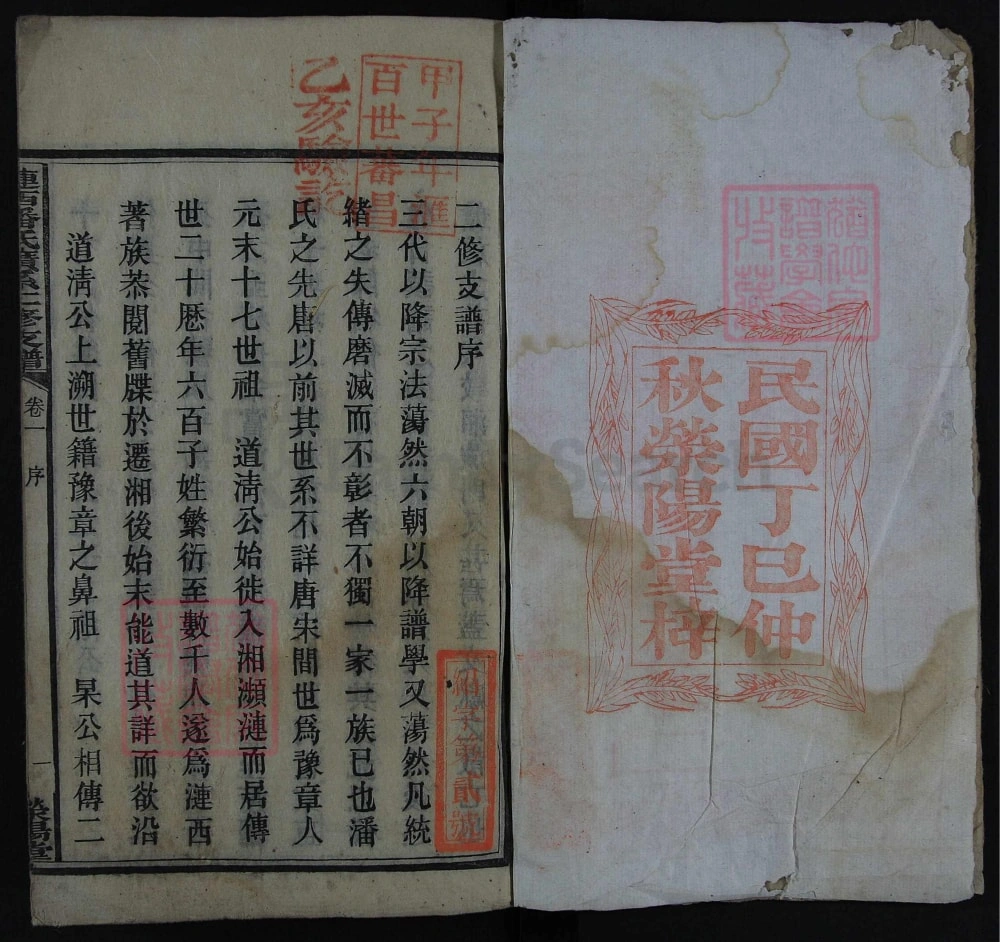 民國丁巳仲
秋滎陽堂梓
甲子年
百世蕃昌
乙亥驗訖
二修支譜序
三代以降宗法蕩然六朝以降譜學又蕩然凡統
緒之失傳磨滅而不彰者不獨一家一族已也潘
氏之先唐以前其世系不詳唐宋間世爲豫章人
元末十七世祖 道淸公始徙入湘瀕漣而居傳
世二十歷年六百子姓繁衍至數千人遂爲漣西
著族叅閱舊牒於遷湘後始末能道其詳而欲沿
道淸公上溯世籍豫章之鼻祖 杲公相傳二
漣西潘氏
二修支譜
卷一
序
一
滎陽堂